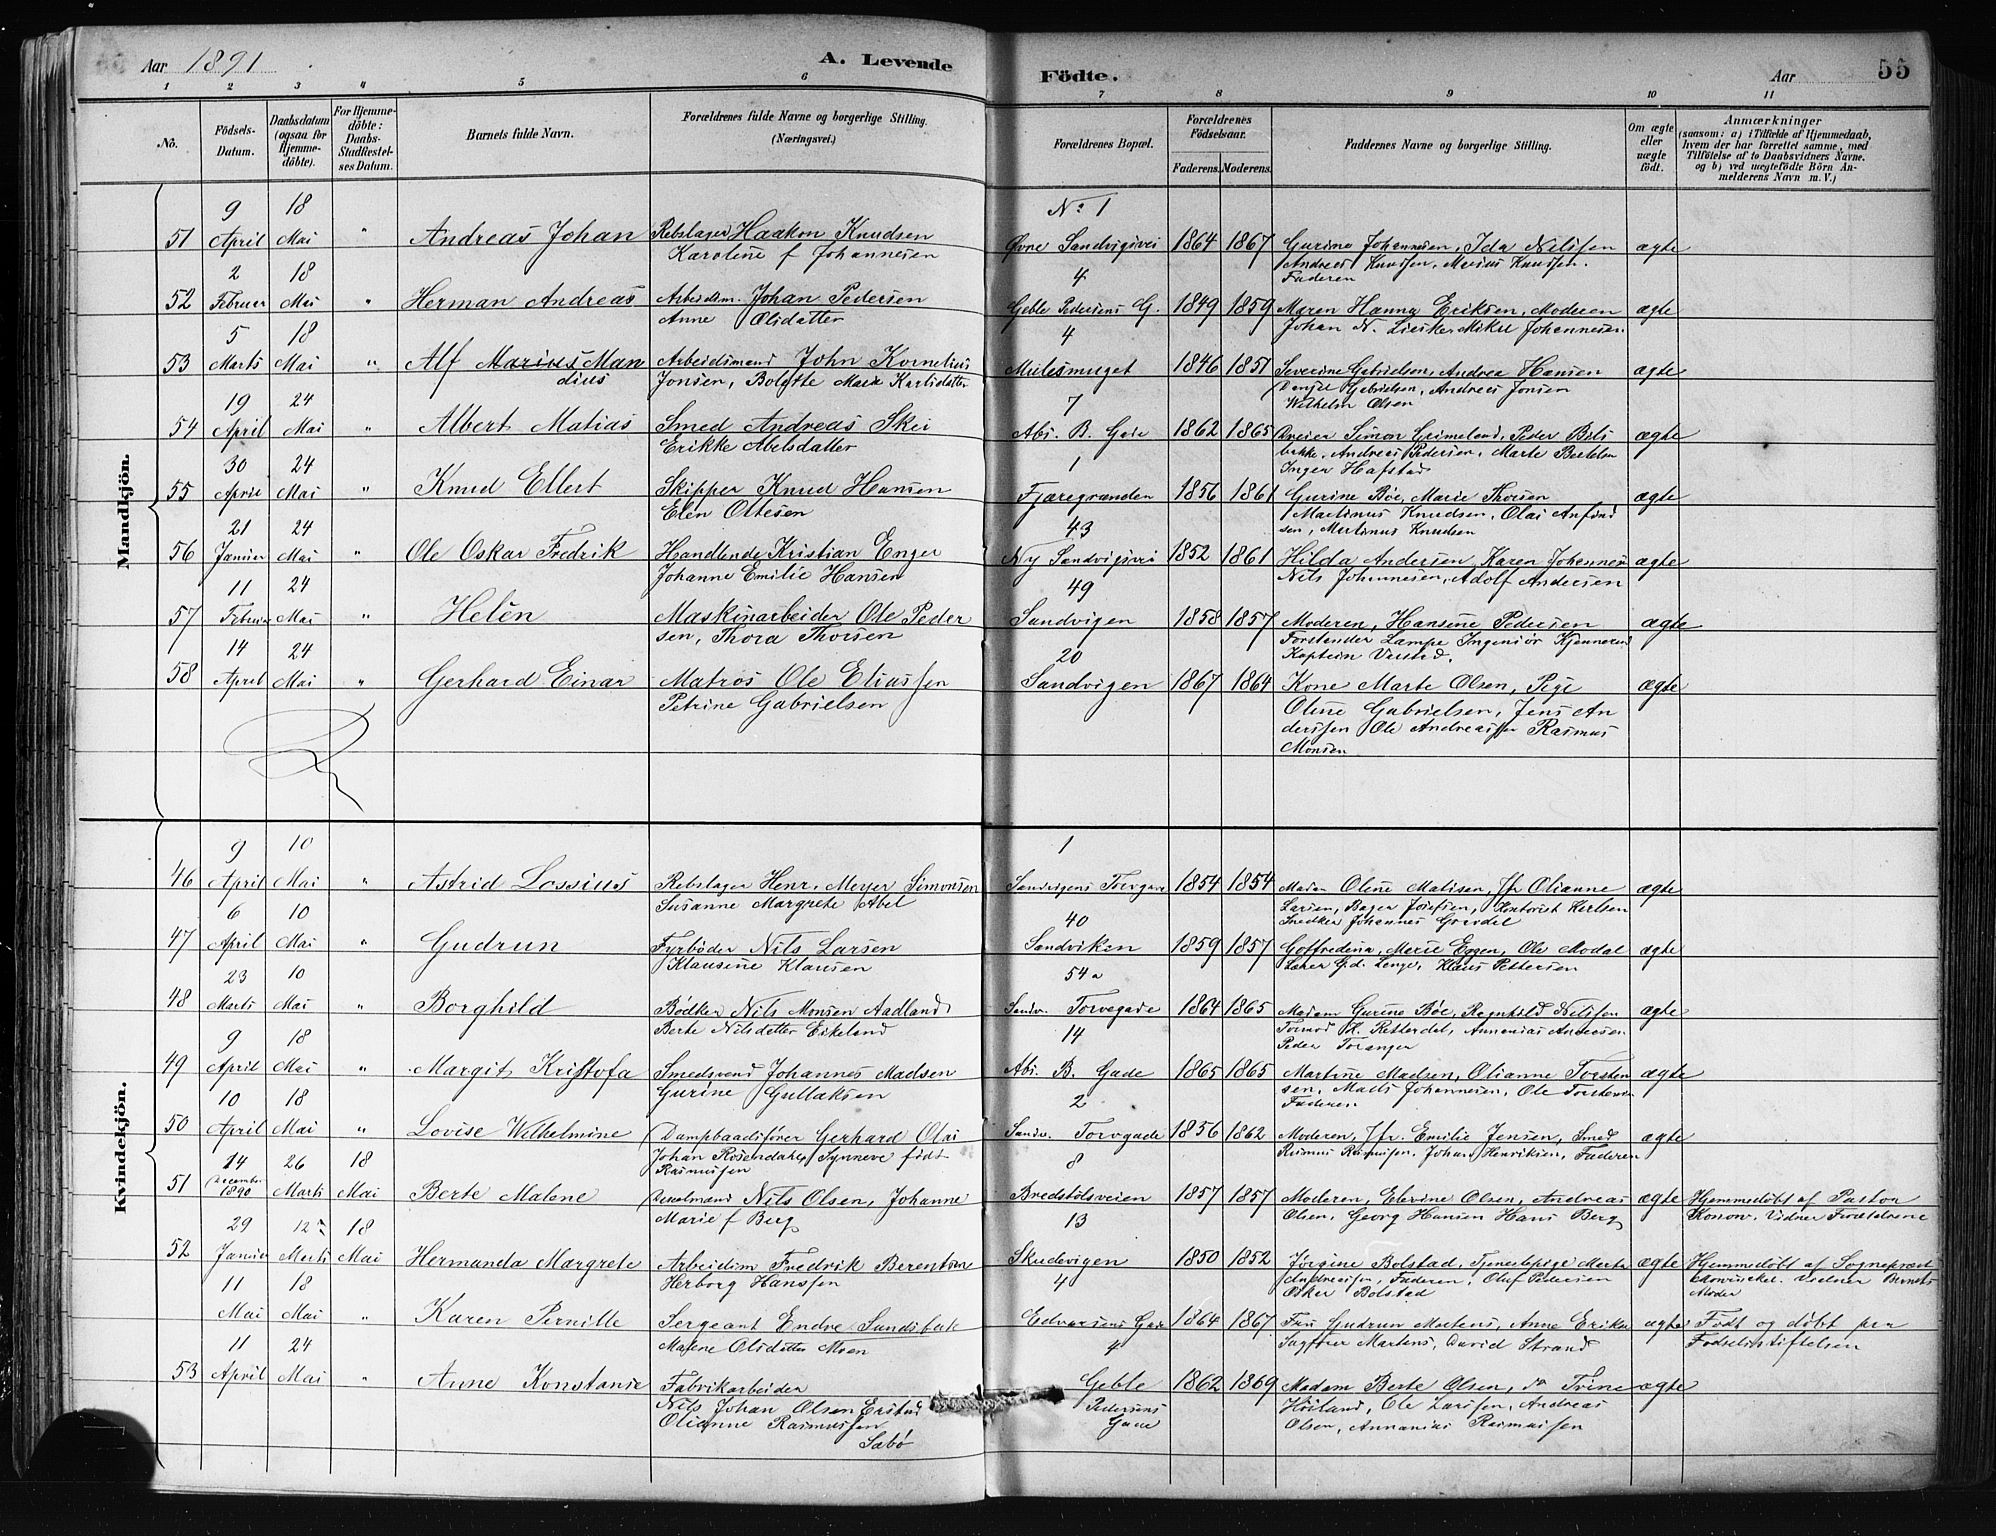 Aar 1891
A. Levende
Födte.
Aar
55
1 2 3 4 5 6 7 8 9 10 11
No.
Födsels-Datum.
Daabsdatum (ogsaa for Hjemme-döbte).
For Hjemme-döbte: Daabs-Stadfæstel-ses Datum.
Barnets fulde Navn.
Forældrenes fulde Navne og borgerlige Stilling. (Næringsvei.)
Forældrenes Bopæl.
Forældrenes Födselsaar. Faderens. Moderens.
Faddernes Navne og borgerlige Stilling.
Om ægte eller uægte födt.
Anmærkninger
(saasom: a) i Tilfælde af Hjemmedaab, hvem der har forrettet samme, med Tilföielse af to Daabsvidners Navne. og b) ved uægtefödte Börn An-melderens Navn m. V.)
Mandkjön.
51 9 April 18 Mai " Andreas Johan Rebslager Haakon Knudsen
Karoline f Johannesen
No 1 Øvre Sandvigsvei 1864 1867 Gurine Johannesen, Ida Nilssen ægte
Andreas Knudsen, Marius Knudsen.
Faderen
52 2 Februar 18 Mai " Herman Andreas Arbeidsm. Johan Pedersen
Anne Olsdatter
4 Geble Pedersens G. 1849 1859 Maren Hanna Eriksen, Moderen ægte
Johan N. Johannesen
53 5 Marts 18 Mai " Alf Marius Man
dius
Arbeidsmand John Kornelius
Jonsen, Bolette Marie Karlsdatter
4 Mulesmuget 1846 1851 Severine Gabrielsen, Andrea Hansen ægte
Daniel Gabrielsen, Andreas Jonsen
Wilhelm Olsen
54 19 April 24 Mai " Albert Matias Smed Andreas Skei
Erikke Abelsdatter
7 Abs. B. Gade 1862 1865 Dreier Simon Grimelund, Peder Bils ægte
bakke, Andreas Pedersen, Marte Bertelsen
Inger Hafstad
55 30 April 24 Mai " Knud Ellert Skipper Knud Hansen
Elen Ottesen
1 Fjæregranden 1856 1861 Gurine Bøe, Marie Thorsen ægte
Martinus Knudsen, Olai Anfind
sen, Martinus Knudsen
56 21 Januar 24 Mai " Ole Oskar Fredrik Handlende Kristian Enger
Johanne Emilie Hansen
43 Ny Sandvigsvei 1852 1861 Hilda Andersen, Karen Johannes ægte
Nils Johannesen, Adolf Andersen
57 11 Februar 24 Mai " Helén Maskinarbeider Ole Peder
sen, Thora Thorsen
49 Sandvigen 1858 1857 Moderen, Hansine Pedersen ægte
Forstander Lampe Ingeniør Kjennerud
Kaptein
58 14 April 24 Mai " Gerhard Einar Matros Ole Eliassen
Petrine Gabrielsen
20 Sandvigen 1867 1864 Kone Marte Olsen, Pige ægte
Oline Gabrielsen, Jens An
derssen Ole Andreassen Rasmus
Monsen
Kvindekjön.
46 9 April 10 Mai " Astrid Lossius Rebslager Henr. Meyer Simonsen
Susanne Margrete Abel
1 Sandvigens Torvgade 1854 1854 Madam Oline Matisen, Jfr Olianne ægte
Larsen, Bager Josefsen, Kontorist Karlsen
Snedker Johannes Grindal
47 6 April 10 Mai " Gudrun Fyrbøder Nils Larsen
Klausine Klausen
40 Sandviken 1859 1857 Goffredina, Marie Eggen, Ole Modal ægte
Klaus Pettersen
48 23 Marts 10 Mai " Borghild Bødker Nils Monsen Aadland
Berte Nilsdatter Eikeland
54 a Sandv. Torvgade 1864 1865 Madam Gurine Bøe, Ragnhild Nilssen ægte
Tormod H. Retterdal, Annanias Andersen
Peder Toranger
49 9 April 18 Mai " Margit Kristofa Smedsvend Johannes Madsen
Gurine Gullaksen
14 Abs. B. Gade 1865 1865 Martine Madsen, Olianne Torsten ægte
sen, Mads Johannesen, Ole Torstensen
Faderen
50 10 April 18 Mai " Lovise Wilhelmine Dampbaadsfører Gerhard Olai
Johan Rosendahl, Synneve født
Rasmussen
2 Sandv. Torvgade 1856 1862 Moderen, Jfr. Emilie Jensen, Smed ægte
Rasmus Rasmussen, Johan Henriksen, Faderen
51 14 December 1890 26 Marts 18 Mai Berte Malene Nils Olsen, Johanne
Marie f Berg
8 Bredstølsveien 1857 1857 Moderen, Elevine Olsen, Andreas ægte Hjemmedøbt af Pastor
Olsen, Georg Hansen Hans Berg Konow. Vidner Forældrene
52 29 Januar 12 Marts 18 Mai Hermanda Margrete Arbeidsm Fredrik Berentsen
Herborg Hanssen
13 Skudevigen 1850 1852 Jørgine Bolstad, Tjenestepige Marta ægte Hjemmedøbt af Sogneprest
Andreassen, Faderen, Oluf Pedersen Vidner Barnets
Osker Bolstad Moder
11 Mai 18 Mai " Karen Pernille Sergeant Endre Sundsbak
Malene Olsdatter Moen
4 Edvardsens Gade 1864 1867 Fru Gudrun Martens, Anne Erika ægte Født og døbt paa
Sagfører Martens, David Strand Fødselsstiftelsen
53 11 April 24 Mai " Anne Konstanse Fabrikarbeider
Nils Johan Olsen Erstad
Olianne Rasmussen
Sabø
4 Geble
Pedersens
Gade
1862 1869 Madam Berte Olsen, do Trine ægte
Høiland, Ole Larssen, Andreas
Olsen, Annanias Rasmussen